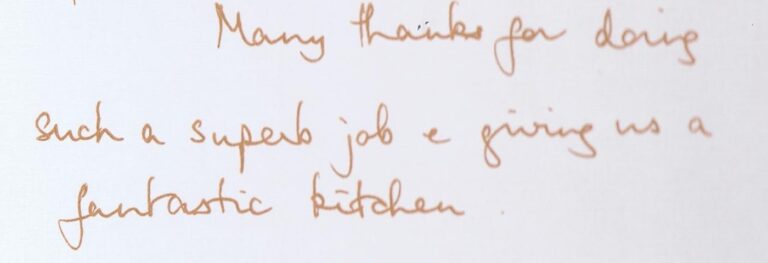 Many thanks for doing
such a superb job e giving us a
fantastic kitchen.